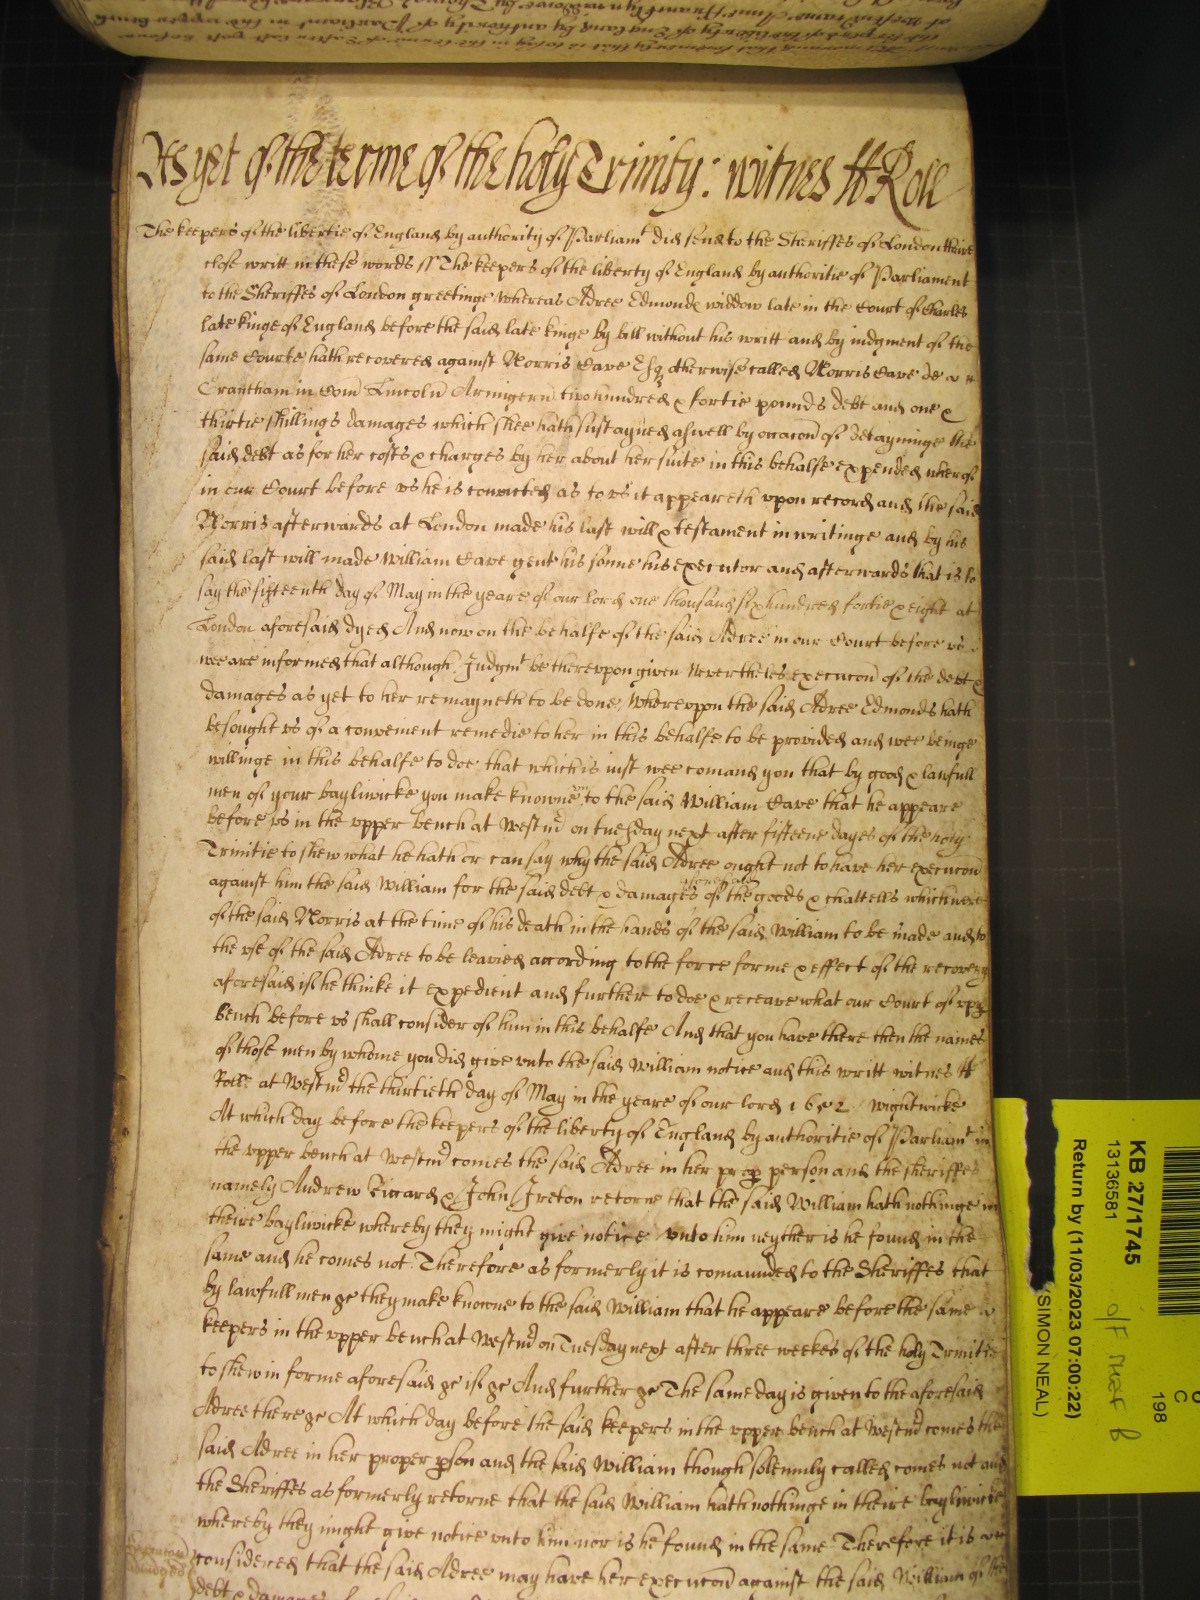 As yet of the terme of the holy Trinity: witnes H Roll
The keepers of the libertie of England by authority of Parliamt did send to the Sheriffes of London theire
close writt in these words ss The keepers of the liberty of England by authoritie of Parliament
to the Sheriffes of London greetinge Whereas Adree Edmonds widdow late in the Court of Charles
late kinge of England before the said late kinge by bill without his writt and by iudgment of the
same Courte hath recovered against Norris Cave Esqr otherwise called Norris Cave de
Grantham in Com Lincoln Armigerum two hundred & fortie pounds debt and one &
thirtie shillings damages which shee hath sustayned aswell by occacon of detayninge the
said debt as for her costs & charges by her about her suite in this behalfe expended wherof
in our Court before vs he is convicted as to vs it appeareth vpon record and the said
Norris afterwards at London made his last will & testament in writinge and by his
said last will made William Cave gent his sonne his executor and afterwards that is to
say the fifteenth day of May in the yeare of our lord one thousand six hundred fortie & eight at
London aforesaid dyed And now on the behalfe of the said Adree in our Court before vs
wee are informed that although Judgmt be therevpon given Neverthelees execucon of the debt &
damages as yet to her remayneth to be done Wherevpon the said Adree Edmonds hath
besought vs of a convenient remedie to her in this behalfe to be provided and wee beinge
willinge in this behalfe to doe that which is iust wee comand you that by good & lawfull
men of your bayliwicke you make knowne vn to the said William Cave that he appeare
before vs in the vpper bench at Westmr on tuesday next after fifteene dayes of the holy
Trinitie to shew what he hath or can say why the said Adree ought not to have her execucon
against him the said William for the said debt & damages aforesaid of the goods & chattells which were
of the said Norris at the time of his death in the hands of the said William to be made and to
the vse of the said Adree to be leavied according to the force forme & effect of the recovery
aforesaid if he thinke it expedient and further to doe & receave what our Court of vpper
bench before vs shall consider of him in this behalfe And that you have there then the names
of those men by whome you did give vnto the said William notice and this writt witnes H
Rolle at Westmr the thirtieth day of May in the yeare of our lord 1652 Wightwicke
At which day before the keepers of the liberty of England by authoritie of Parliamt in
the vpper bench at Westmr comes the said Adree in her proper person and the sheriffes
namely Andrew Riccard & John Ireton retorne that the said William hath nothinge in
theire bayliwicke whereby they might give notice vnto him neyther is he found in the
same and he comes not Therefore as formerly it is comaunded to the Sheriffes that
by lawfull men &c they make knowne to the said William that he appeare before the same
keepers in the vpper bench at Westmr on Tuesday next after three weekes of the holy Trinitie
to shew in forme aforesaid &c if &c And further &c The same day is given to the aforesaid
Adree there &c At which day before the said keepers in the vpper bench at Westmr comes the
said Adree in her proper pson and the said William though solemnly called comes not and
the Sheriffes as formerly retorne that the said William hath nothinge in theire bayliwicke
whereby they might give notice vnto him nor is he found in the same Therefore it is
considered that the said Adree may have her execucon against the said William of the
debt & damages
KB 27/1745
13136581
Return by (11/03/2023 07:00:22)
(SIMON NEAL)
198